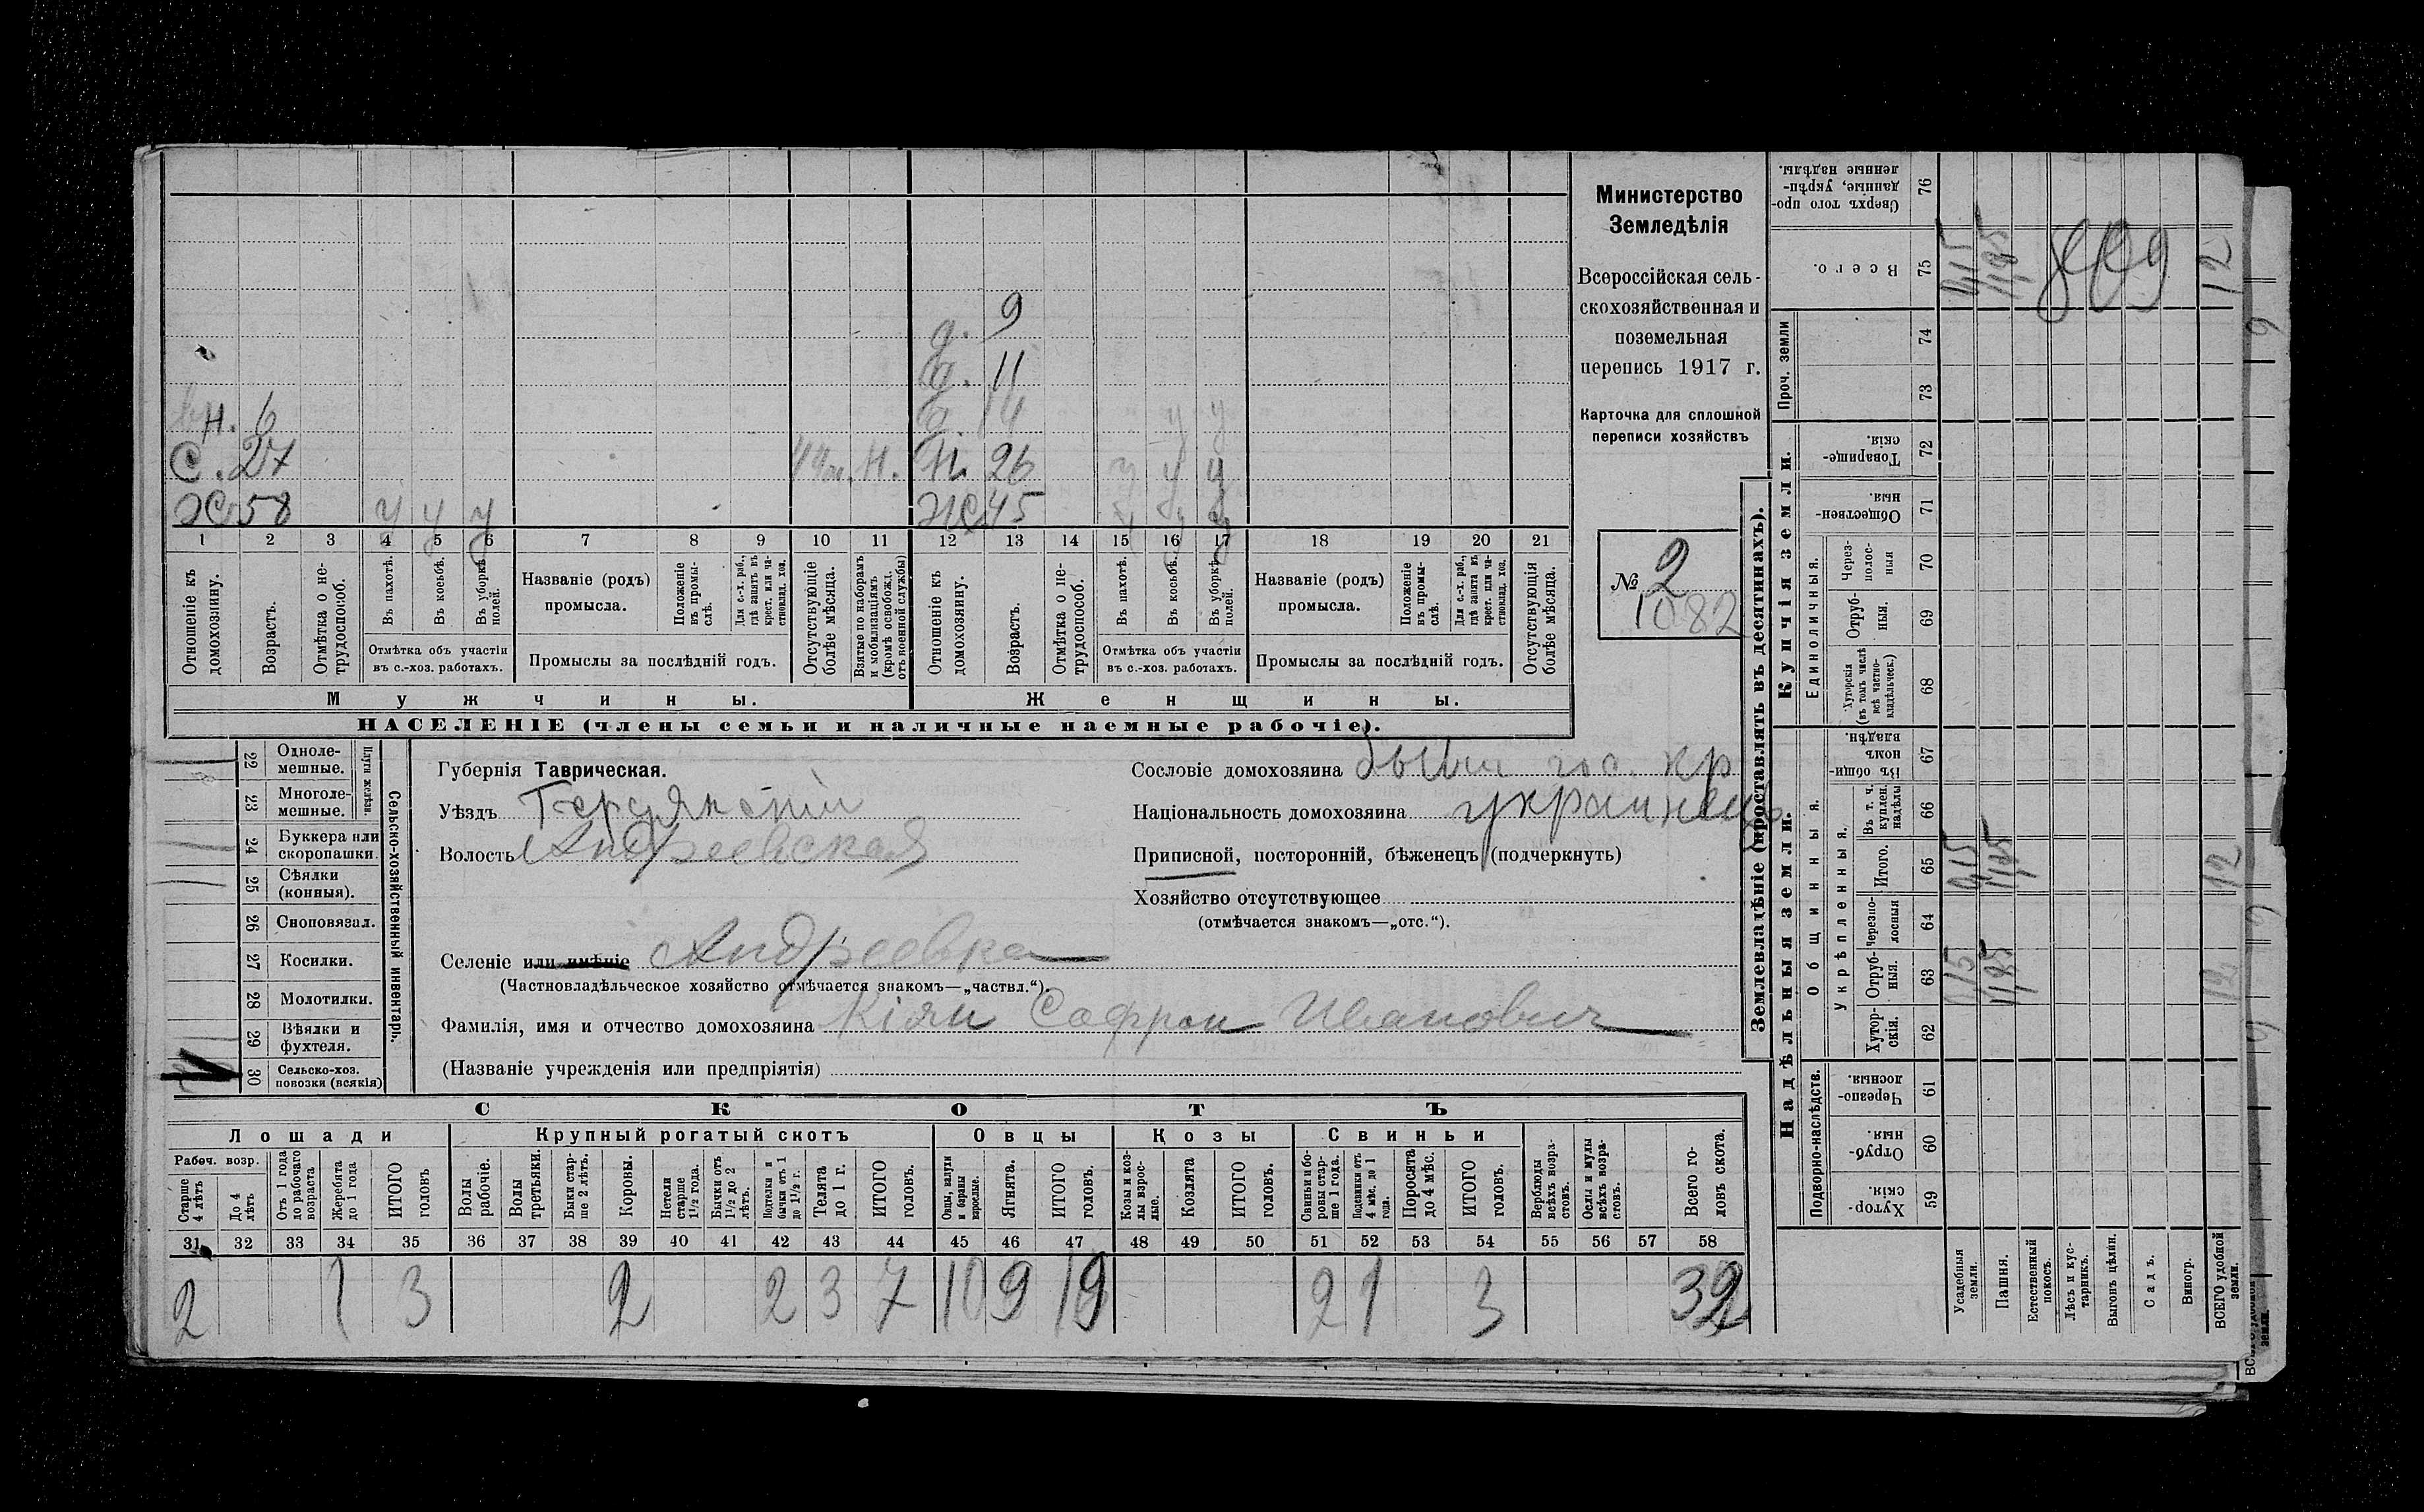 Министерство
Земледѣлія
Всероссійская сель-
скохозяйственная и
поземельная
перепись 1917 г.
Карточка для сплошной
переписи хозяйствъ
№ 2
1082
9
д. 11
Н. 6
С. 27 Н. Н. 26 у у у
Ж 58 у у у Ж 45 у у у
1 2 3 4 5 6 7 8 9 10 11 12 13 14 15 16 17 18 19 20 21
Отношеніе къ домохозяину.
Возрастъ.
Отмѣтка о не-трудоспособ.
Въ пахотѣ.
Въ косьбѣ.
Въ уборкѣ полей.
Отмѣтка объ участіи
въ с.-хоз. работахъ.
Названіе (родъ)
промысла.
Положеніе въ промы-слѣ.
Для с.-х. раб., гдѣ занятъ въ крест. или ча-стновлад. хоз.
Промыслы за послѣдній годъ.
Отсутствующіе болѣе мѣсяца.
Взятые по наборамъ и мобилизаціямъ (кромѣ освобожд. отъ военной службы)
Отношеніе къ домохозяину.
Возрастъ.
Отмѣтка о не-трудоспособ.
Въ пахотѣ.
Въ косьбѣ.
Въ уборкѣ полей.
Отмѣтка объ участіи
въ с.-хоз. работахъ.
Названіе (родъ)
промысла.
Положеніе въ промы-слѣ.
Для с.-х. раб., гдѣ занята въ крест. или ча-стновлад. хоз.
Промыслы за послѣдній годъ.
Отсутствующія болѣе мѣсяца.
Мужчины. Женщины.
НАСЕЛЕНІЕ (члены семьи и наличные наемные рабочіе).
Сельско-хозяйственный инвентарь.
Плуги желѣзн.
22 Одноле-мешные.
23 Многоле-мешные.
24 Буккера или скоропашки.
25 Сѣялки (конныя).
26 Сноповязал.
27 Косилки.
28 Молотилки.
29 Вѣялки и фухтеля.
30 Сельско-хоз. повозки (всякія)
Губернія Таврическая.
Уѣздъ Бердянскій
Волость Андреевская
Селеніе или имѣніе Андреевка
(Частновладѣльческое хозяйство отмѣчается знакомъ—„частвл.“).
Фамилія, имя и отчество домохозяина Кіян Софрон Иванович
(Названіе учрежденія или предпріятія)
Сословіе домохозяина бывш гос. кр
Національность домохозяина украинець
Приписной, посторонній, бѣженецъ (подчеркнуть)
Хозяйство отсутствующее
(отмѣчается знакомъ—„отс.“).
СКОТЪ
Лошади Крупный рогатый скотъ Овцы Козы Свиньи
Рабоч. возр.
Старше 4 лѣтъ
До 4 лѣтъ
Отъ 1 года до рабочаго возраста
Жеребята до 1 года
ИТОГО головъ
Волы рабочіе.
Волы третьяки.
Быки стар-ше 2 лѣтъ.
Коровы.
Нетели старше 1½ года.
Бычки отъ 1½ до 2 лѣтъ.
Подтелки и бычки отъ 1 до 1½ г.
Телята до 1 г.
ИТОГО головъ.
Овцы, валухи и бараны взрослые.
Ягнята.
ИТОГО головъ.
Козы и коз-лы взрос-лые.
Козлята
ИТОГО головъ.
Свиньи и бо-ровы стар-ше 1 года.
Подсвинки отъ 4 мѣс. до 1 года.
Поросята до 4 мѣс.
ИТОГО головъ.
Верблюды всѣхъ возра-стовъ.
Ослы и мулы всѣхъ возра-стовъ.
Всего го-ловъ скота.
31 32 33 34 35 36 37 38 39 40 41 42 43 44 45 46 47 48 49 50 51 52 53 54 55 56 57 58
2 1 3 2 2 3 7 10 9 19 2 1 3 32
Землевладѣніе (проставлять въ десятинахъ).
Надѣльныя земли. Купчія земли.
Проч. земли
Подворно-наслѣдств.
Общинныя.
Укрѣпленныя.
Единоличныя.
Сверхъ того про-данные, укрѣп-ленные надѣлы. 76
Всего. 75
74
73
Товарище-скія. 72
Обществен-ныя. 71
Через-полос-ныя 70
Отруб-ныя. 69
Хуторскія (въ томъ числѣ всѣ частно-владѣльческ.) 68
Въ общин-номъ владѣн. 67
Въ т. ч. куплен. надѣлы 66
Итого. 65
Черезпо-лосныя 64
Отруб-ныя. 63
Хутор-скія. 62
Черезпо-лосныя. 61
Отруб-ныя. 60
Хутор-скія. 59
Усадебныя земли.
Пашня.
Естественный покосъ.
Лѣсъ и кус-тарникъ.
Выгонъ цѣлин.
Садъ.
Виногр.
ВСЕГО удобной земли.
12
12
12